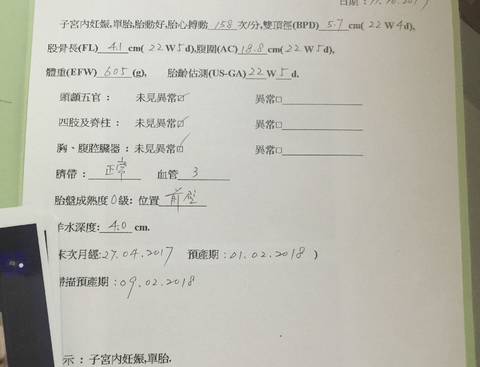 日期:
子宮內妊娠,單胎,胎動好,胎心搏動 158 次/分,雙頂徑(BPD) 5.7 cm( 22 W 4 d),
股骨長(FL) 4.1 cm( 22 W 5 d),腹圍(AC) 18.8 cm( 22 W 5 d),
體重(EFW) 605 (g), 胎齡估測(US-GA) 22 W 5 d.
頭顱五官: 未見異常☑ 異常□
四肢及脊柱: 未見異常☑ 異常□
胸、腹腔臟器: 未見異常☑ 異常□
臍帶: 正常 血管 3
胎盤成熟度 0 級: 位置 前壁
羊水深度: 4.0 cm.
末次月經:27.04.2017 預產期:01.02.2018 )
預產期:09.02.2018
示: 子宮內妊娠,單胎.